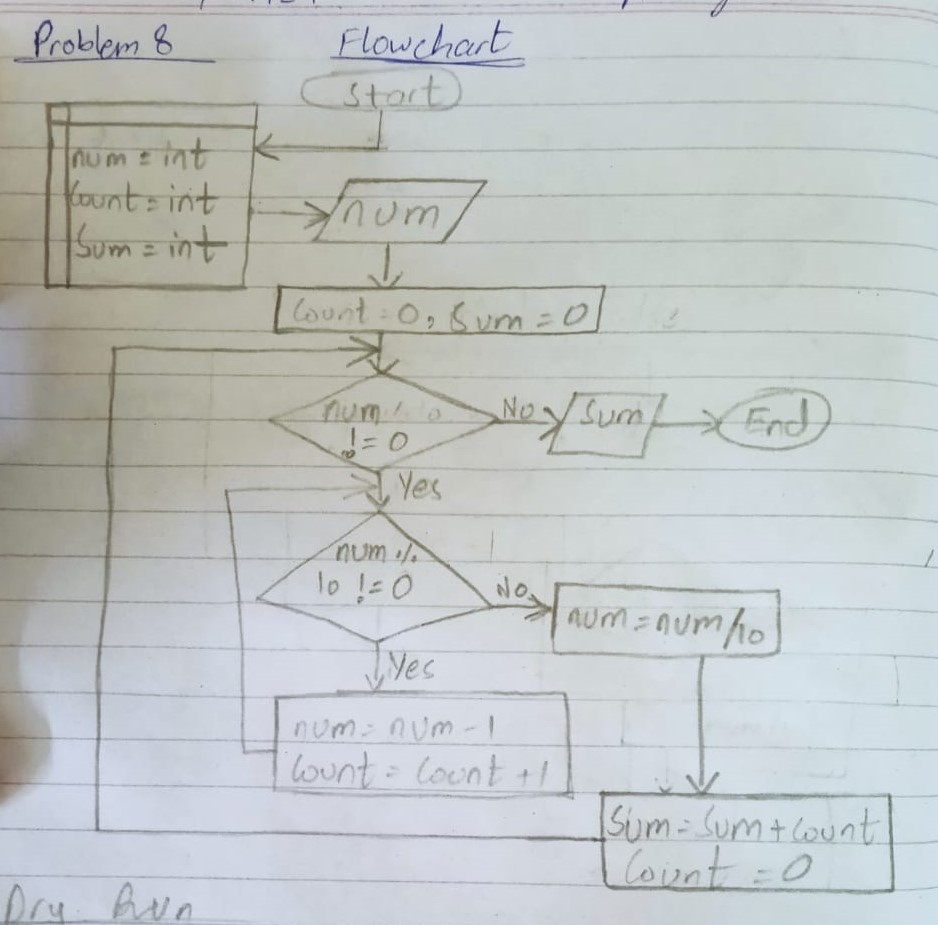 Problem 8 Flowchart
Start
num = int
Count = int
Sum = int
num
Count = 0, Sum = 0
num % 10
!= 0
No
Sum
End
Yes
num %
10 != 0
No
num = num/10
Yes
num = num - 1
Count = Count + 1
Sum = Sum + Count
Count = 0
Dry Run